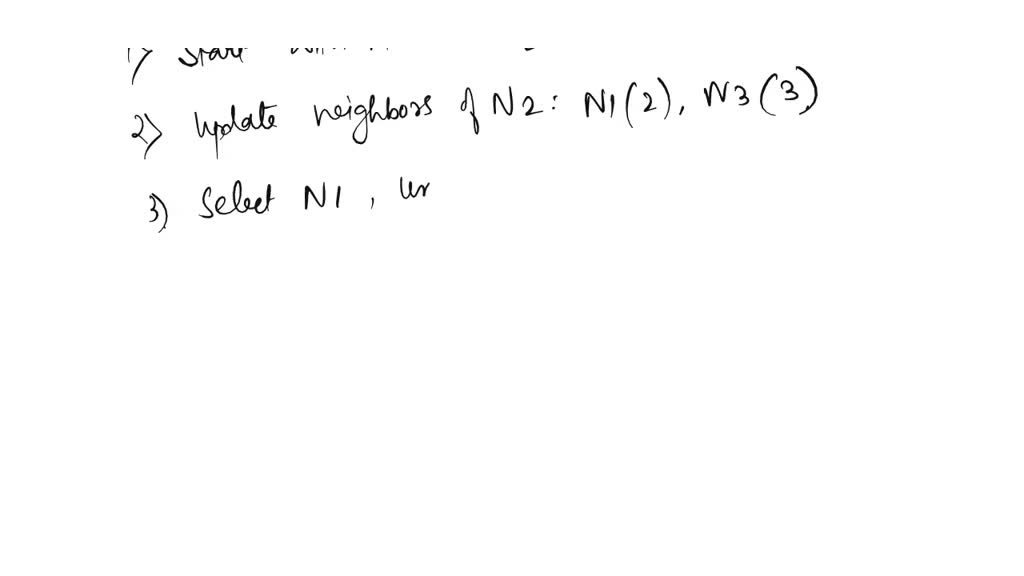 1) Start
2) Update neighbors of N2: N1(2), N3(3)
3) Select N1,